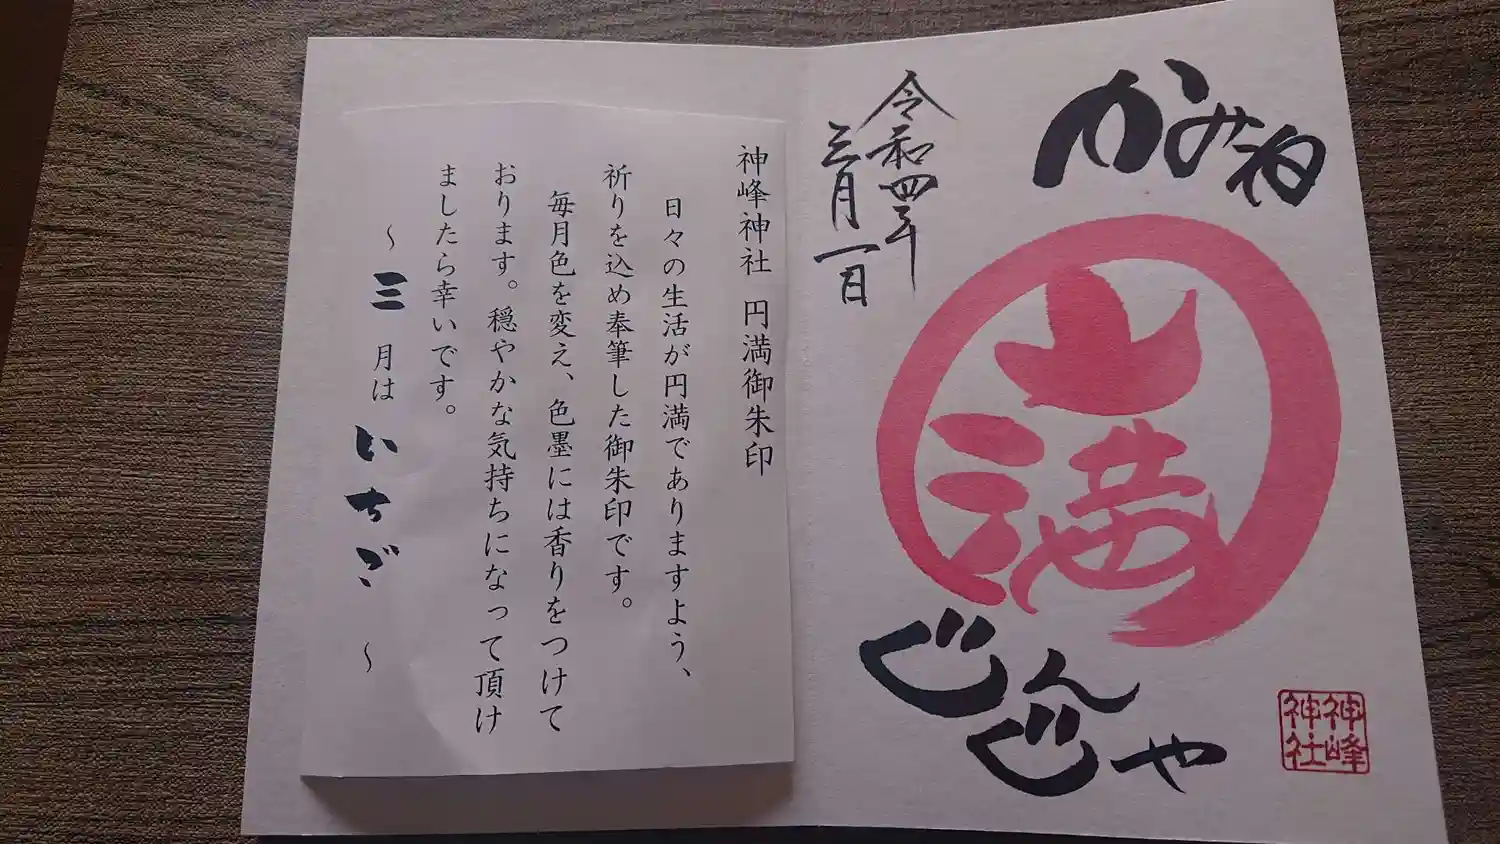 かみね
満
じんじゃ
令和四年
三月一日
神峰
神社
神峰神社 円満御朱印
日々の生活が円満でありますよう、
祈りを込め奉筆した御朱印です。
毎月色を変え、色墨には香りをつけて
おります。穏やかな気持ちになって頂け
ましたら幸いです。
～三月は いちご ～